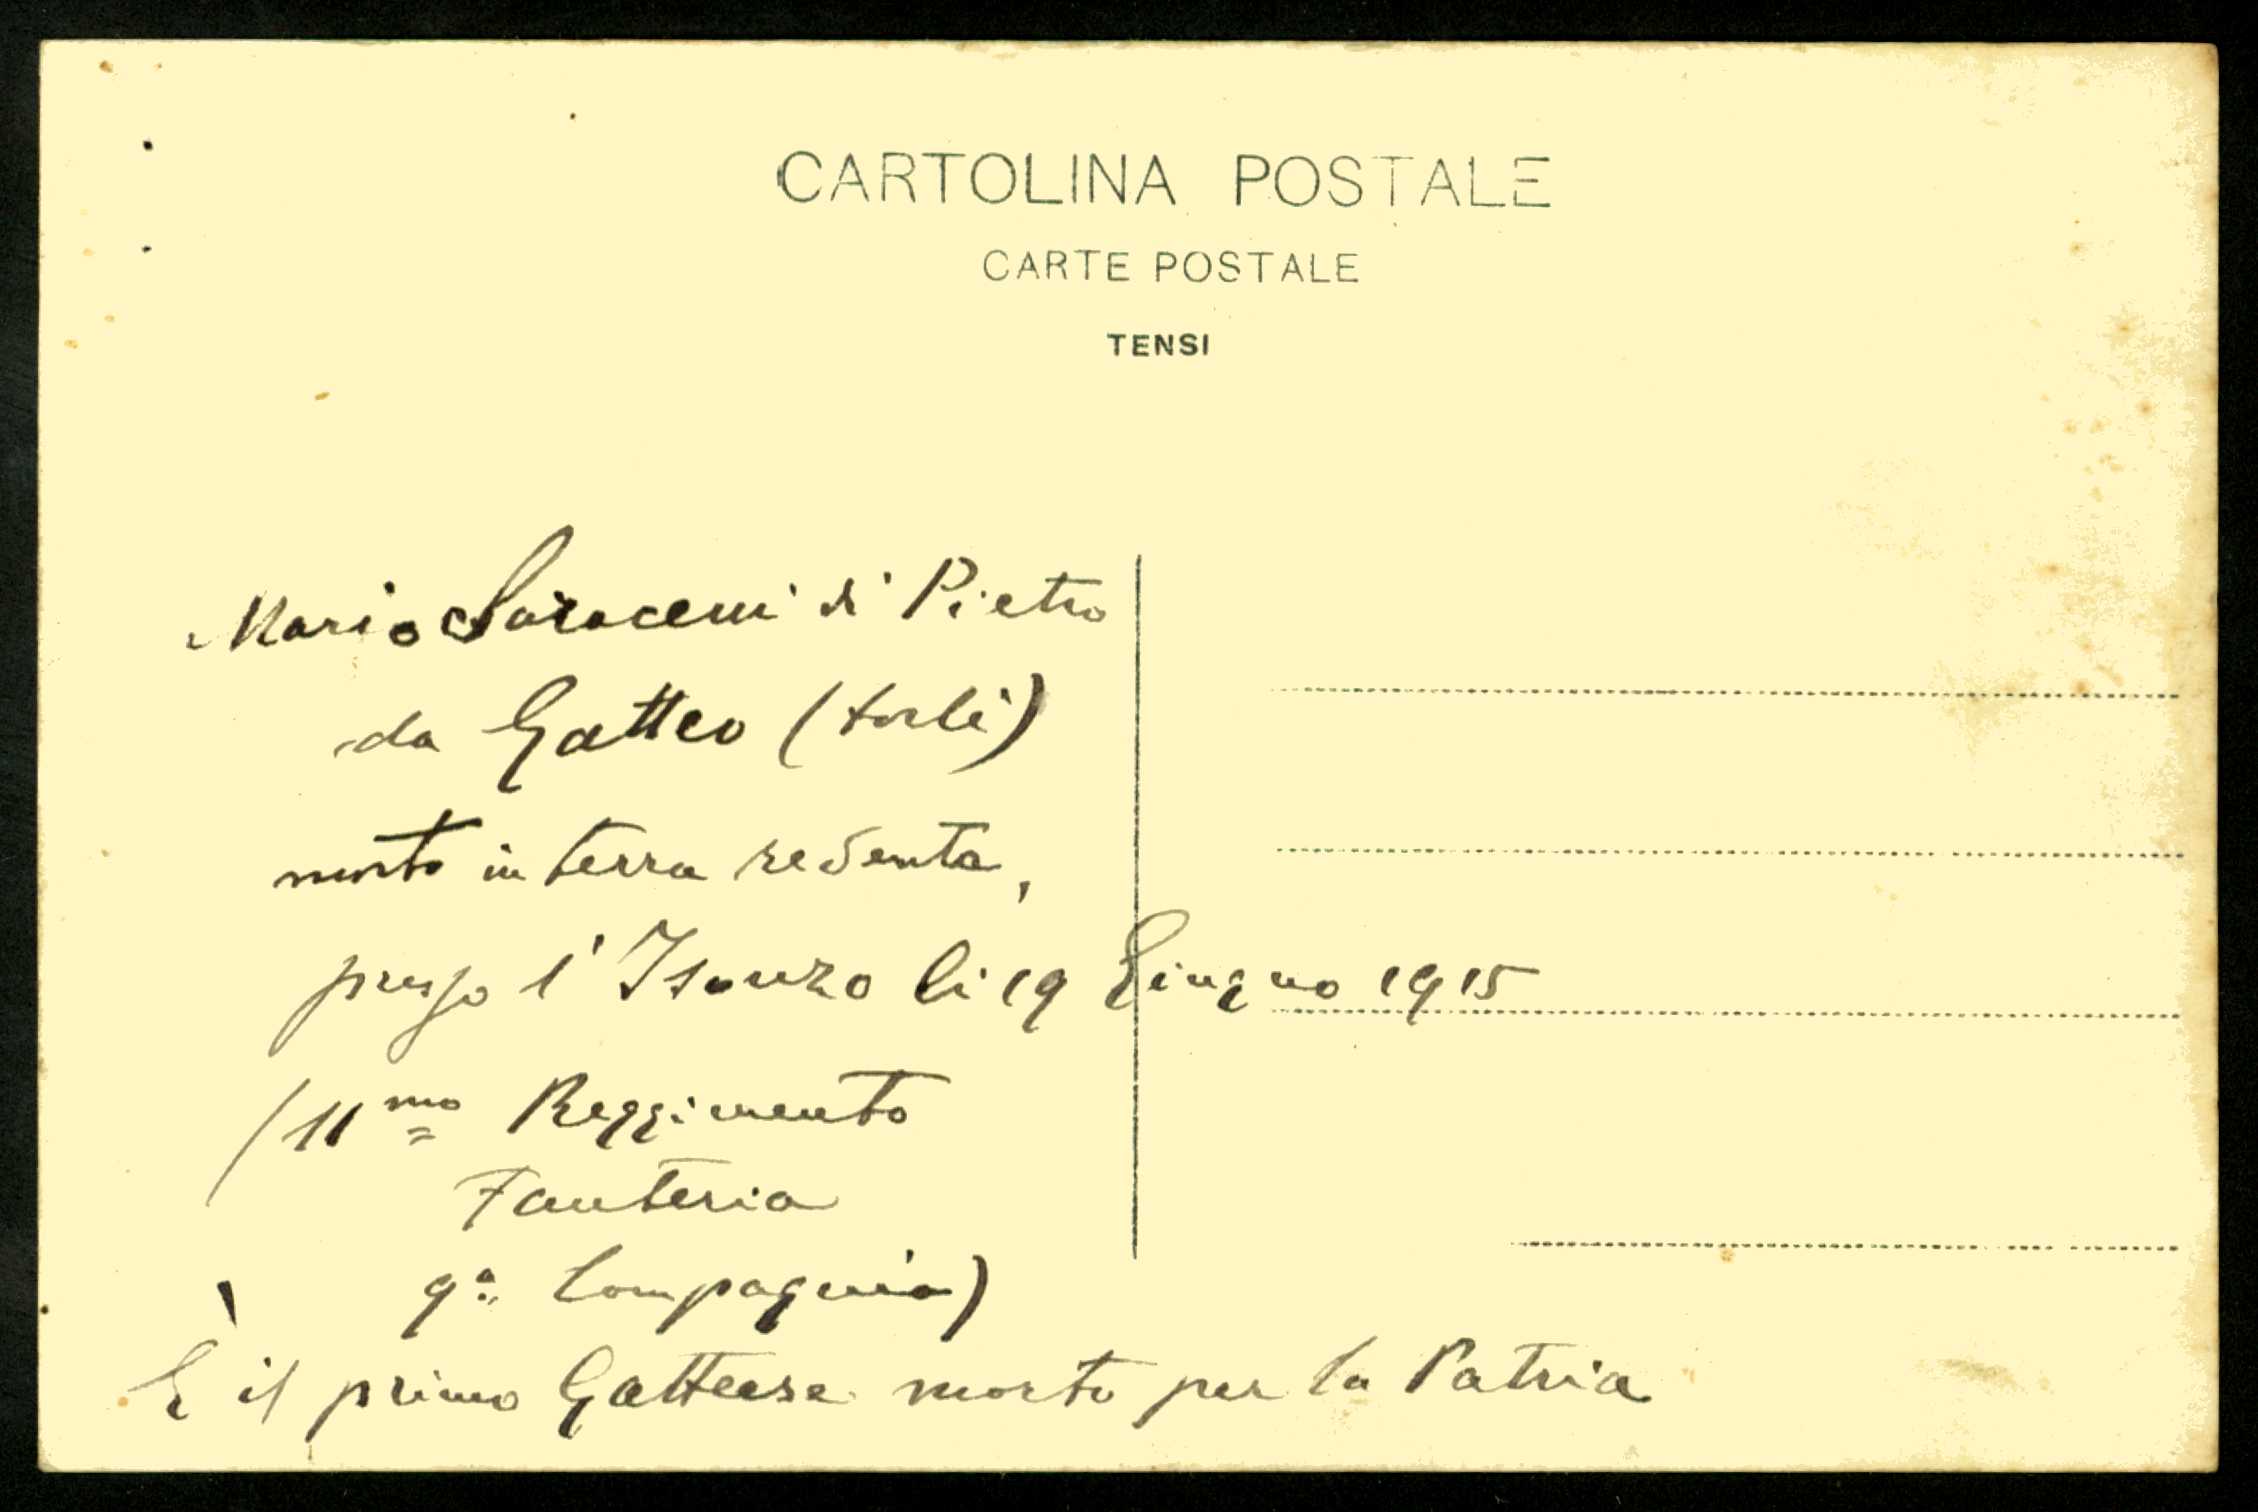 CARTOLINA POSTALE
CARTE POSTALE
TENSI
Mario Saraceni di Pietro
da Gatteo (Forlì)
morto in terra redenta,
presso l'Isonzo li 19 Giugno 1915
(11mo Reggimento
Fanteria
9a Compagnia)
È il primo Gatteese morto per la Patria